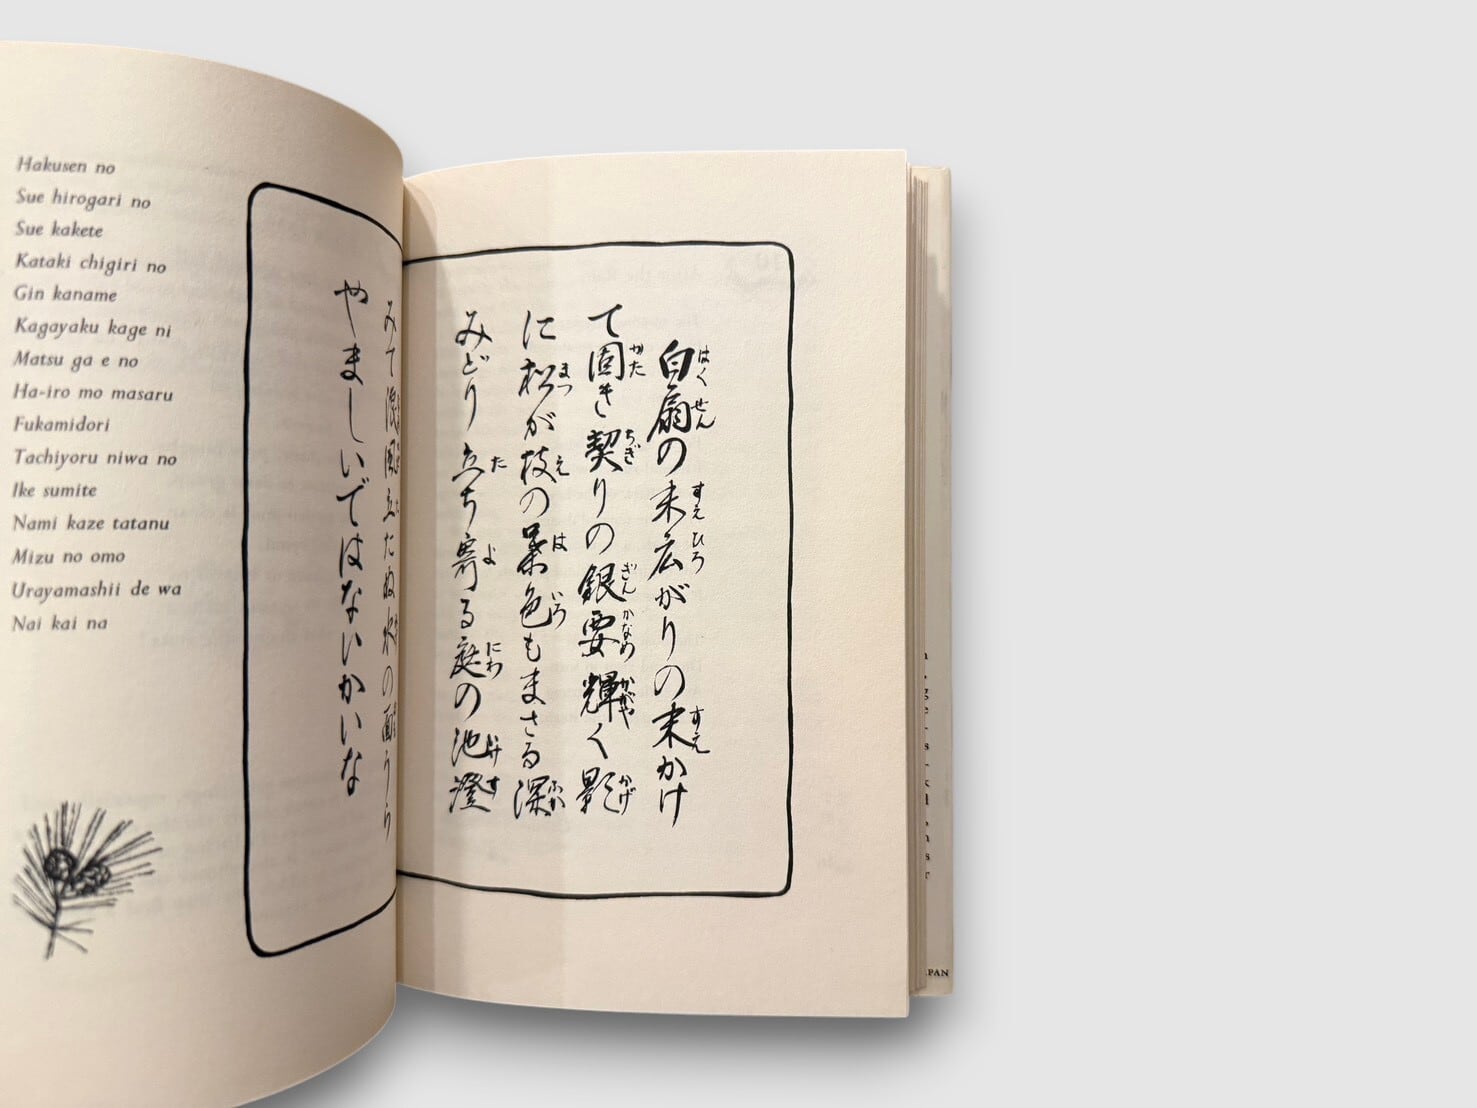 Hakusen no
Sue hirogari no
Sue kakete
Kataki chigiri no
Gin kaname
Kagayaku kage ni
Matsu ga e no
Ha-iro mo masaru
Fukamidori
Tachiyoru niwa no
Ike sumite
Nami kaze tatanu
Mizu no omo
Urayamashii de wa
Nai kai na
はくせん すえひろ すえ
白扇の末広がりの末かけ
かた ちぎ ぎんかなめ かがや かげ
て固き契りの銀要輝く影
まつ え は いろ ふか
に松が枝の葉色もまさる深
た よ にわ いけ す
みどり立ち寄る庭の池澄
みて浪風立たぬ水の面うら
やましいではないかいな